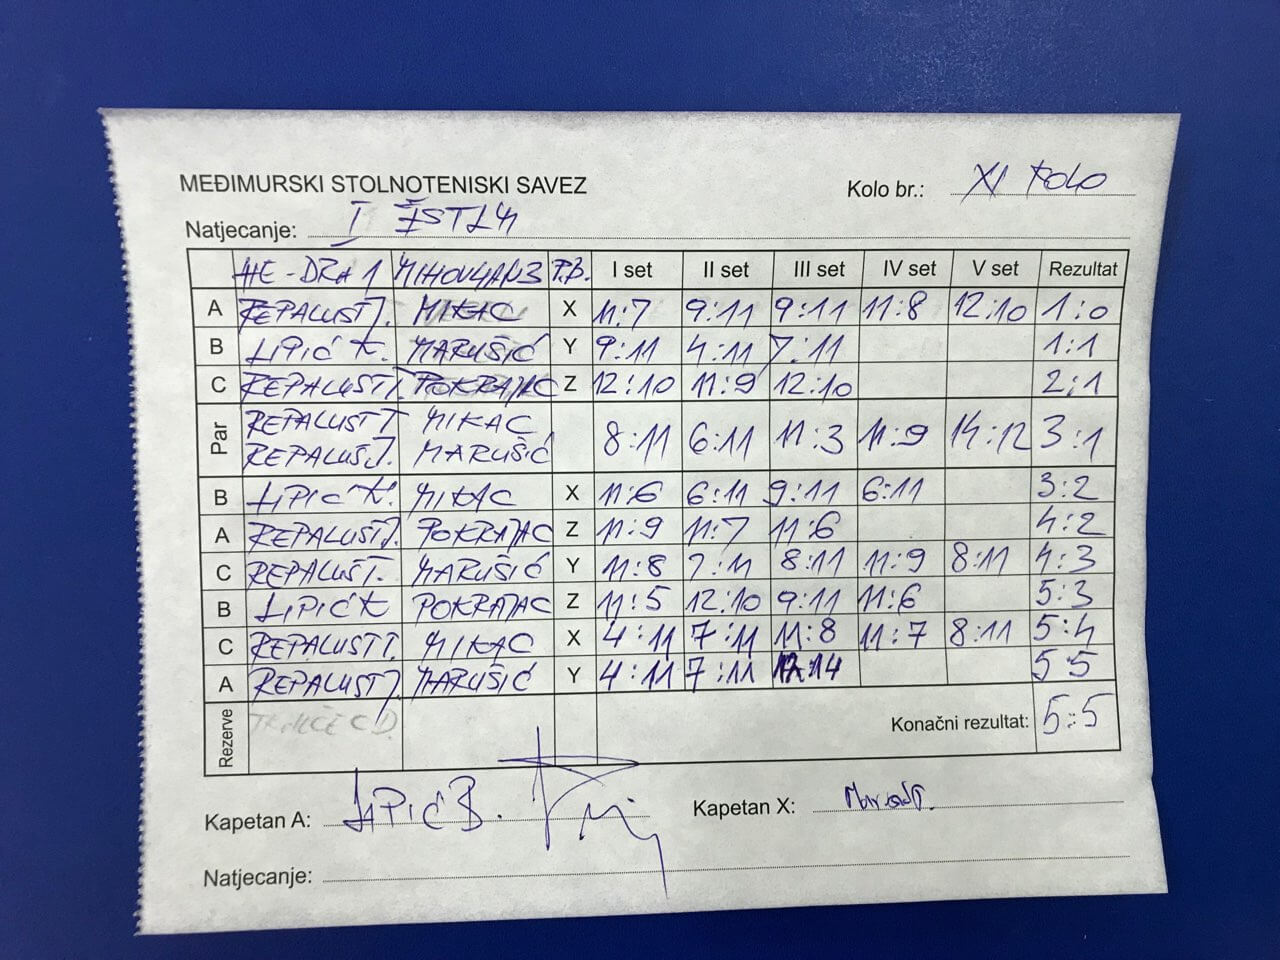 MEĐIMURSKI STOLNOTENISKI SAVEZ
Kolo br.: XI KOLO
Natjecanje: I ŽSTL
HE-DRA 1 MIHOVLJAN 3 P.B. I set II set III set IV set V set Rezultat
A REPALUST J. MIKAC X 11:7 9:11 9:11 11:8 12:10 1:0
B LIPIĆ K. MARUŠIĆ Y 9:11 4:11 7:11 1:1
C REPALUST T. POKRAJAC Z 12:10 11:9 12:10 2:1
Par REPALUST T MIKAC 8:11 6:11 11:3 11:9 14:12 3:1
REPALUS J. MARUŠIĆ
B LIPIĆ K. MIKAC X 11:6 6:11 9:11 6:11 3:2
A REPALUST J. POKRAJAC Z 11:9 11:7 11:6 4:2
C REPALUS T. MARUŠIĆ Y 11:8 7:11 8:11 11:9 8:11 4:3
B LIPIĆ K POKRAJAC Z 11:5 12:10 9:11 11:6 5:3
C REPALUST T. MIKAC X 4:11 7:11 11:8 11:7 8:11 5:4
A REPALUST J. MARUŠIĆ Y 4:11 7:11 12:14 5 5
Rezerve Konačni rezultat: 5:5
Kapetan A: LIPIĆ B. Kapetan X:
Natjecanje: